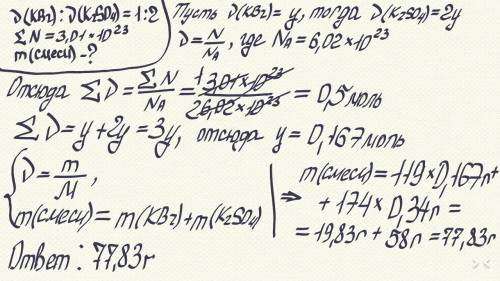 ν(KBr):ν(K₂SO₄)=1:2
ΣN=3,01×10²³
m(смеси)-?
Пусть ν(KBr)=y, тогда ν(K₂SO₄)=2y
ν=N/Nᴀ, где Nᴀ=6,02×10²³
Отсюда Σν=ΣN/Nᴀ=¹3,01×10²³/²6,02×10²³=0,5моль
Σν=y+2y=3y, отсюда y=0,167моль
{ν=m/M,
m(смеси)=m(KBr)+m(K₂SO₄)
⇒ m(смеси)=119×0,167г+
+174×0,34г=
=19,83г+58г=77,83г
Ответ: 77,83г